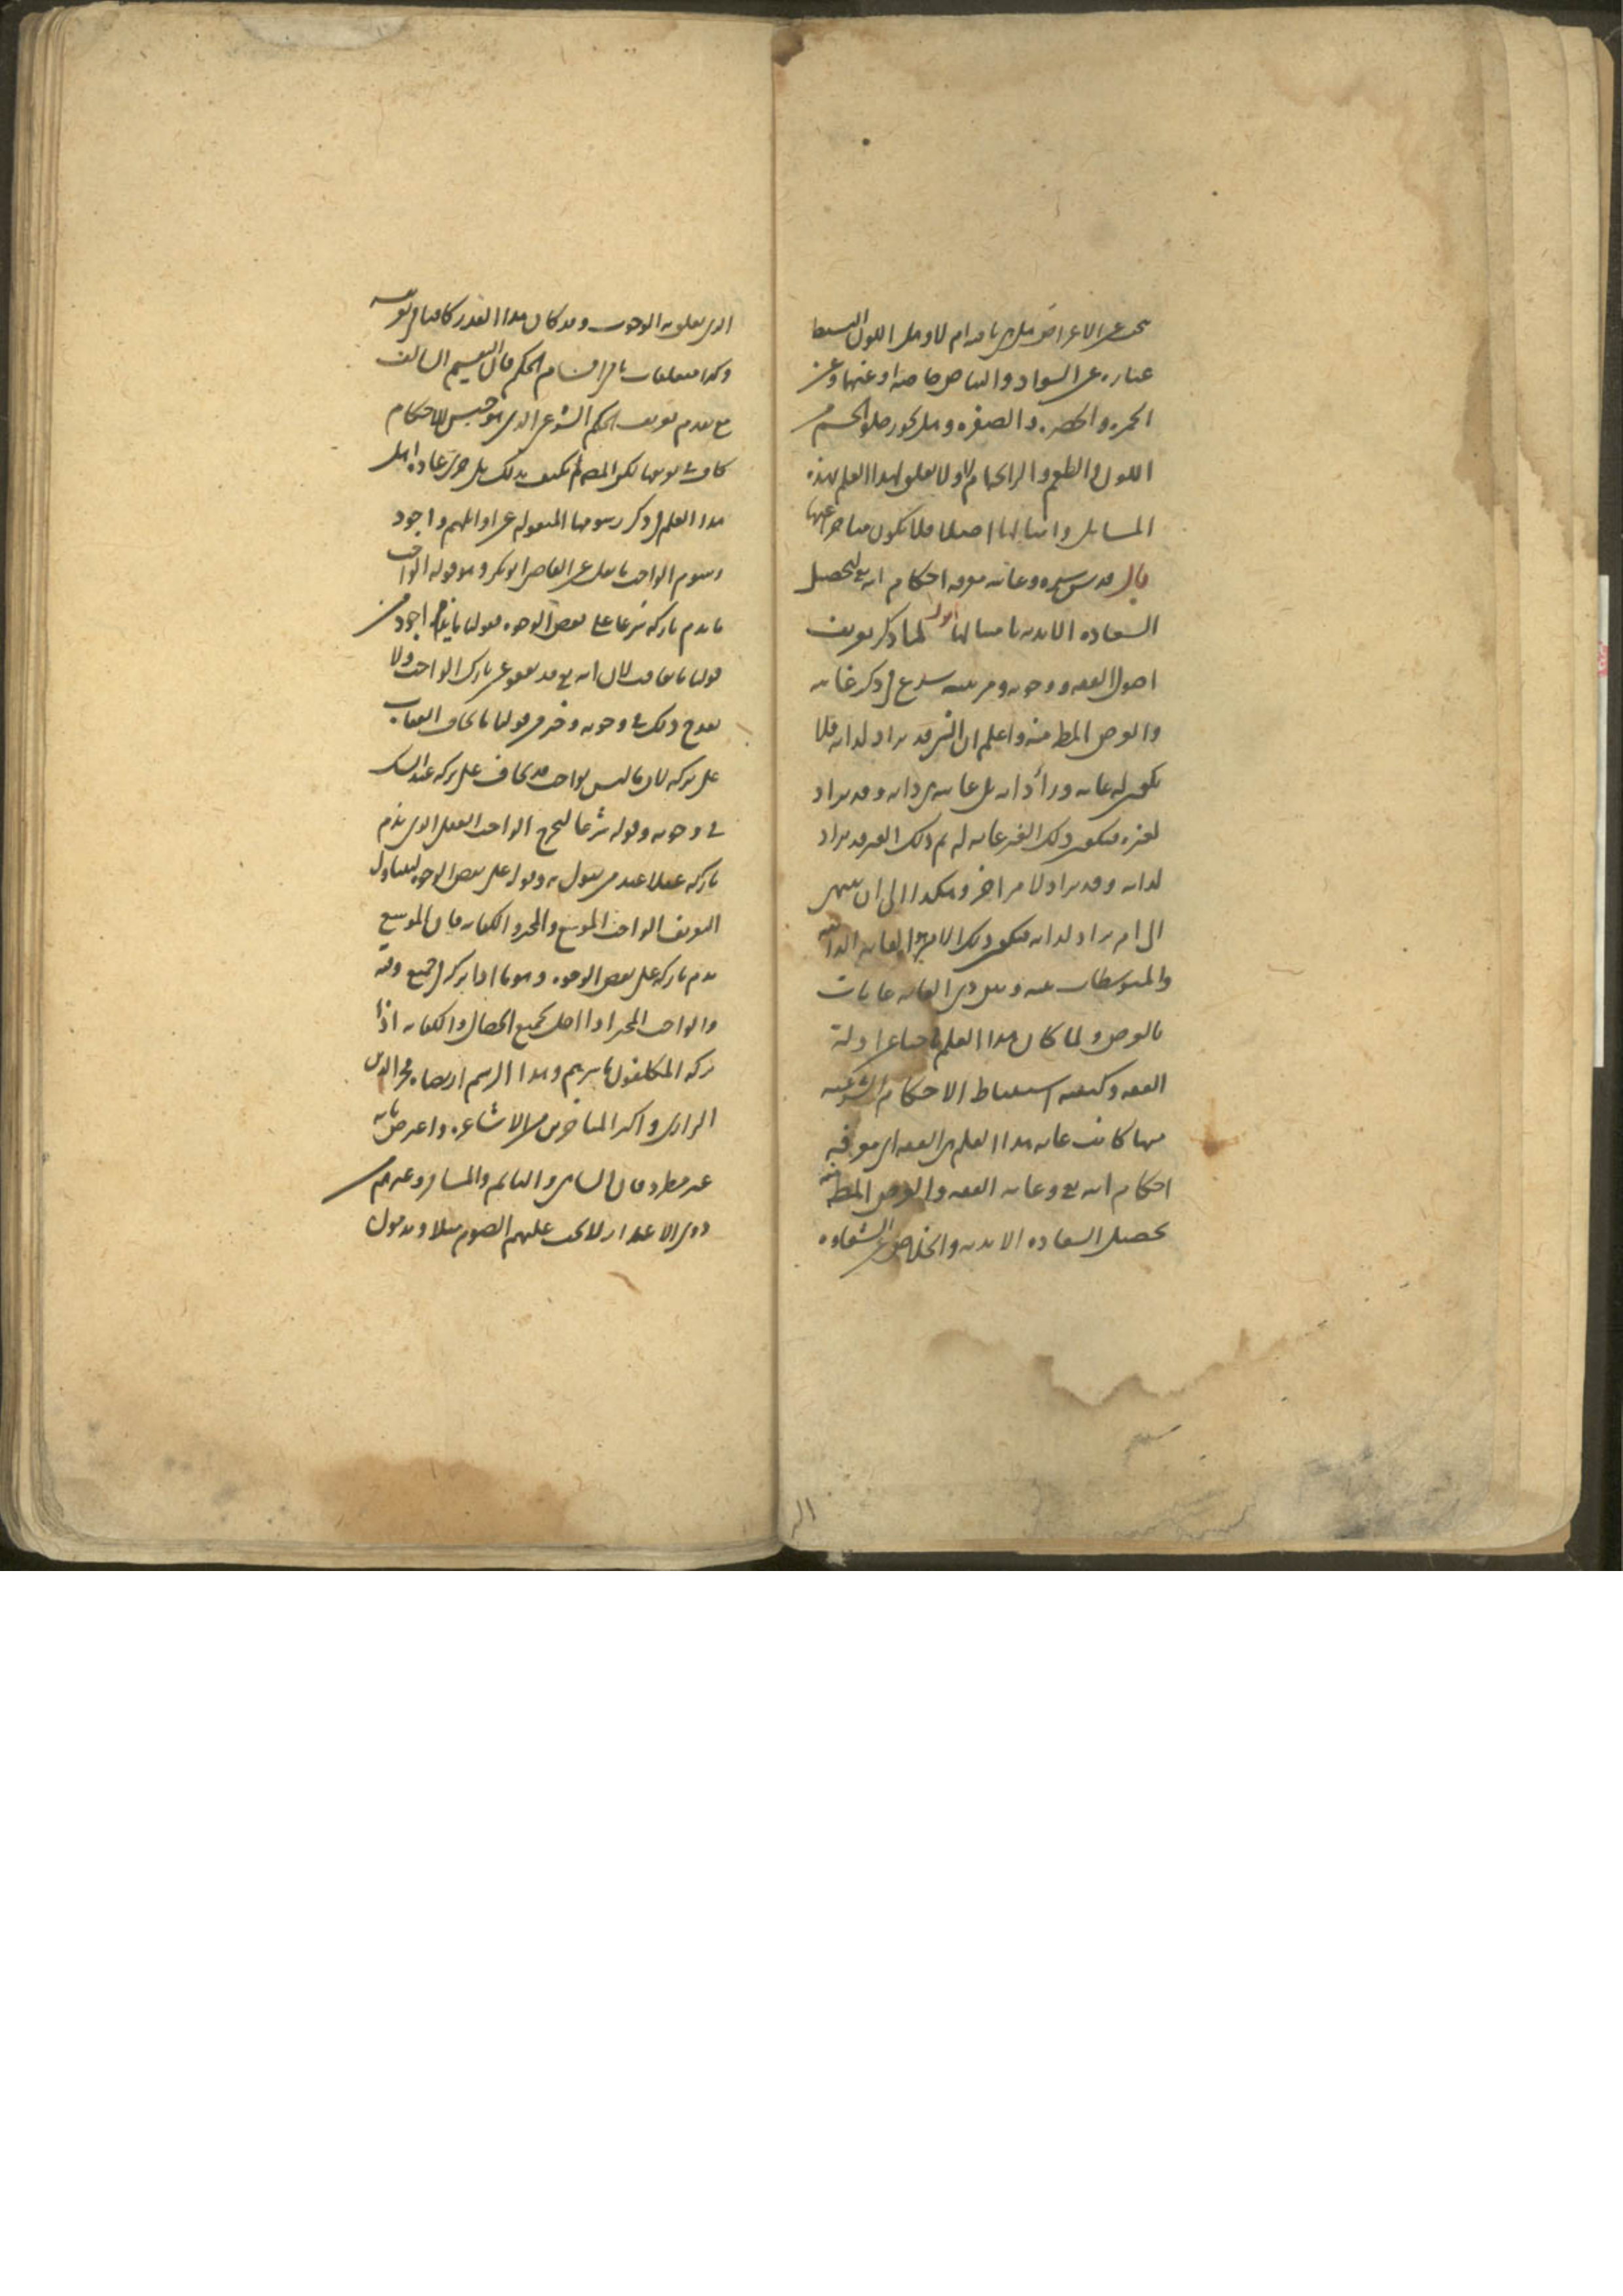 عن الاعراض هل هي باقية ام لا وهل اللون البسيط
عبارة عن السواد والبياض خاصة او عنهما وعن
الحمرة والخضرة والصفرة وهل يجوز خلو الجسم من
اللون والطعم والرائحة ام لا ولا تعلق لهذا العلم بهذه
المسايل وامثالها اصلا فلا يكون متاخرا عنها
قال قدس سره وغايته معرفة احكام الله تع لتحصيل
السعادة الابدية بامتثالها اقول لما ذكر تعريف
اصول الفقه ووجوبه ومرتبته شرع في ذكر غايته
والغرض المط منه واعلم ان الشي قد يراد لذاته فلا
يكون له غاية وراء ذاته بل غايته هي ذاته وقد يراد
لغيره فيكون ذلك الغير غاية له ثم ذلك الغير قد يراد
لذاته وقد يراد لامر اخر وهكذا الى ان ينتهي
الى ام يراد لذاته فيكون ذلك الامر هو الغاية الذاتية
والمتوسطات بينه وبين ذي الغاية غايات
بالعرض ولما كان هذا العلم باحثا عن ادلة
الفقه وكيفية استنباط الاحكام الشرعية
منها كانت غاية هذا العلم هي الفقه اي معرفة
احكام الله تع وغاية الفقه والغرض المط منه
تحصيل السعادة الابدية والخلاص عن الشقاوة
الذي تعلق به الوجوب وقد كان هذا القدر كافيا في تعريفه
وكذا متعلقات باقي اقسام الحكم فان التقسيم السالف
مع تقدم تعريف الحكم الشرعي الذي هو جنس للاحكام
كاف في تعريفها لكن المصـ لم يكتف بذلك بل جرى على عادة اهل
هذا العلم في ذكر رسومها المنقولة عن اوائلهم واجود
رسوم الواجب ما نقل عن القاضي ابو بكر وهو قوله الواجب
ما يذم تاركه شرعا على بعض الوجوه فقولنا ما يذم اجود من
قولنا ما يعاقب لان الله تع قد يعفو عن تارك الواجب ولا
يقدح ذلك في وجوبه وخير من قولنا ما يخاف العقاب
على تركه لان ما ليس بواجب قد يخاف على تركه عند الشك
في وجوبه وقوله شرعا ليخرج الواجب العقلي الذي يذم
تاركه عقلا عند من يقول به وقوله على بعض الوجوه ليتناول
التعريف الواجب الموسع والمخير والكفاية فان الموسع
يذم تاركه على بعض الوجوه وهو ما اذا تركه في جميع وقته
والواجب المخير اذا اخل بجميع الخصال والكفاية اذا
تركه المكلفون باسرهم وهذا الرسم ارتضاه فخر الدين
الرازي واكثر المتاخرين من الاشاعرة واعترض بانه
غير مطرد فان الساهي والنائم والمسافر وغيرهم من
ذوي الاعذار لا يجب عليهم الصوم مثلا ويذمون